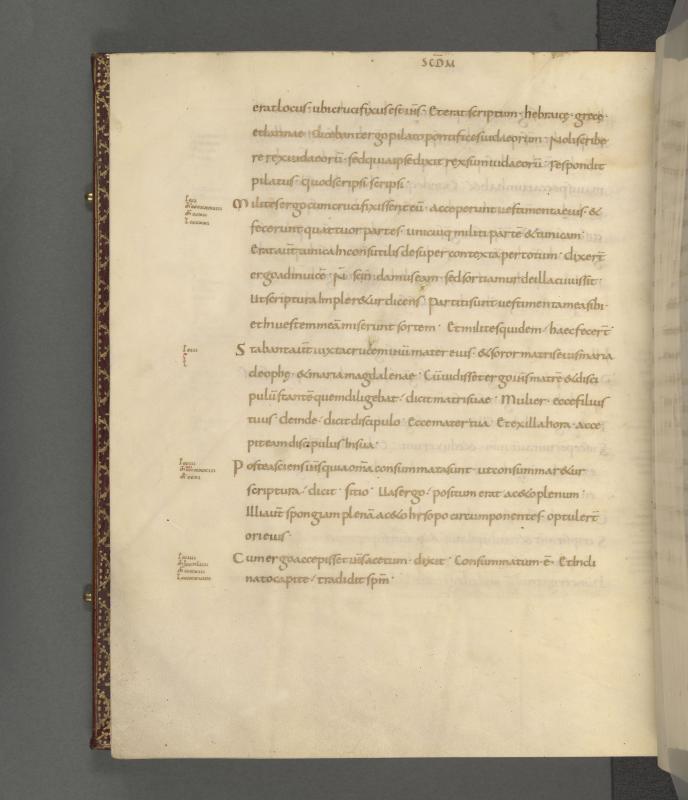 SCD̄M
erat locus · ubi crucifixus est ih̄s · Et erat scriptum · hebraicę · grecę ·
et latinae · dicebant ergo pilato pontifices iudaeorum · Noli scribe
re rex iudaeorū · sed quia ipse dixit rex sum iudaeorū · respondit
pilatus · quod scripsi scripsi ·
Milites ergo cum crucifixissent eū · acceperunt uestimenta eius · &
fecerunt quattuor partes · unicuiq; militi partē & tunicam ·
Erat aut̄ tunica Inconsutilis desuper contexta per totum · dixer̄t
ergo ad inuicē · N̄ scindamus eam · sed sortiamur de illa cuius sit ·
Ut scriptura Impler&ur dicens · partiti sunt uestimenta mea sibi ·
et In uestem meā miserunt sortem · Et milites quidem / haec fecer̄t ·
Stabant aut̄ iuxta crucem ih̄u mater eius · & soror matris eius maria
cleophę · & maria magdalenae · Cū uidisset ergo ih̄s matrē & disci
pulū stantē quem diligebat / dicit matri suae · Mulier · ecce filius
tuus · deinde / dicit discipulo · Ecce mater tua · Et ex illa hora · acce
pit eam discipulus In sua ·
Postea sciens ih̄s quia om̄a consummata sunt · ut consummar&ur
scriptura / dicit · sitio · Uas ergo / positum erat ac&o plenum ·
Illi aut̄ spongiam plenā ac&o hysopo circumponentes · optuler̄t
ori eius ·
Cum ergo accepisset ih̄s acetum · dixit · Consummatum · ē · Et Incli
nato capite / tradidit sp̄m ·